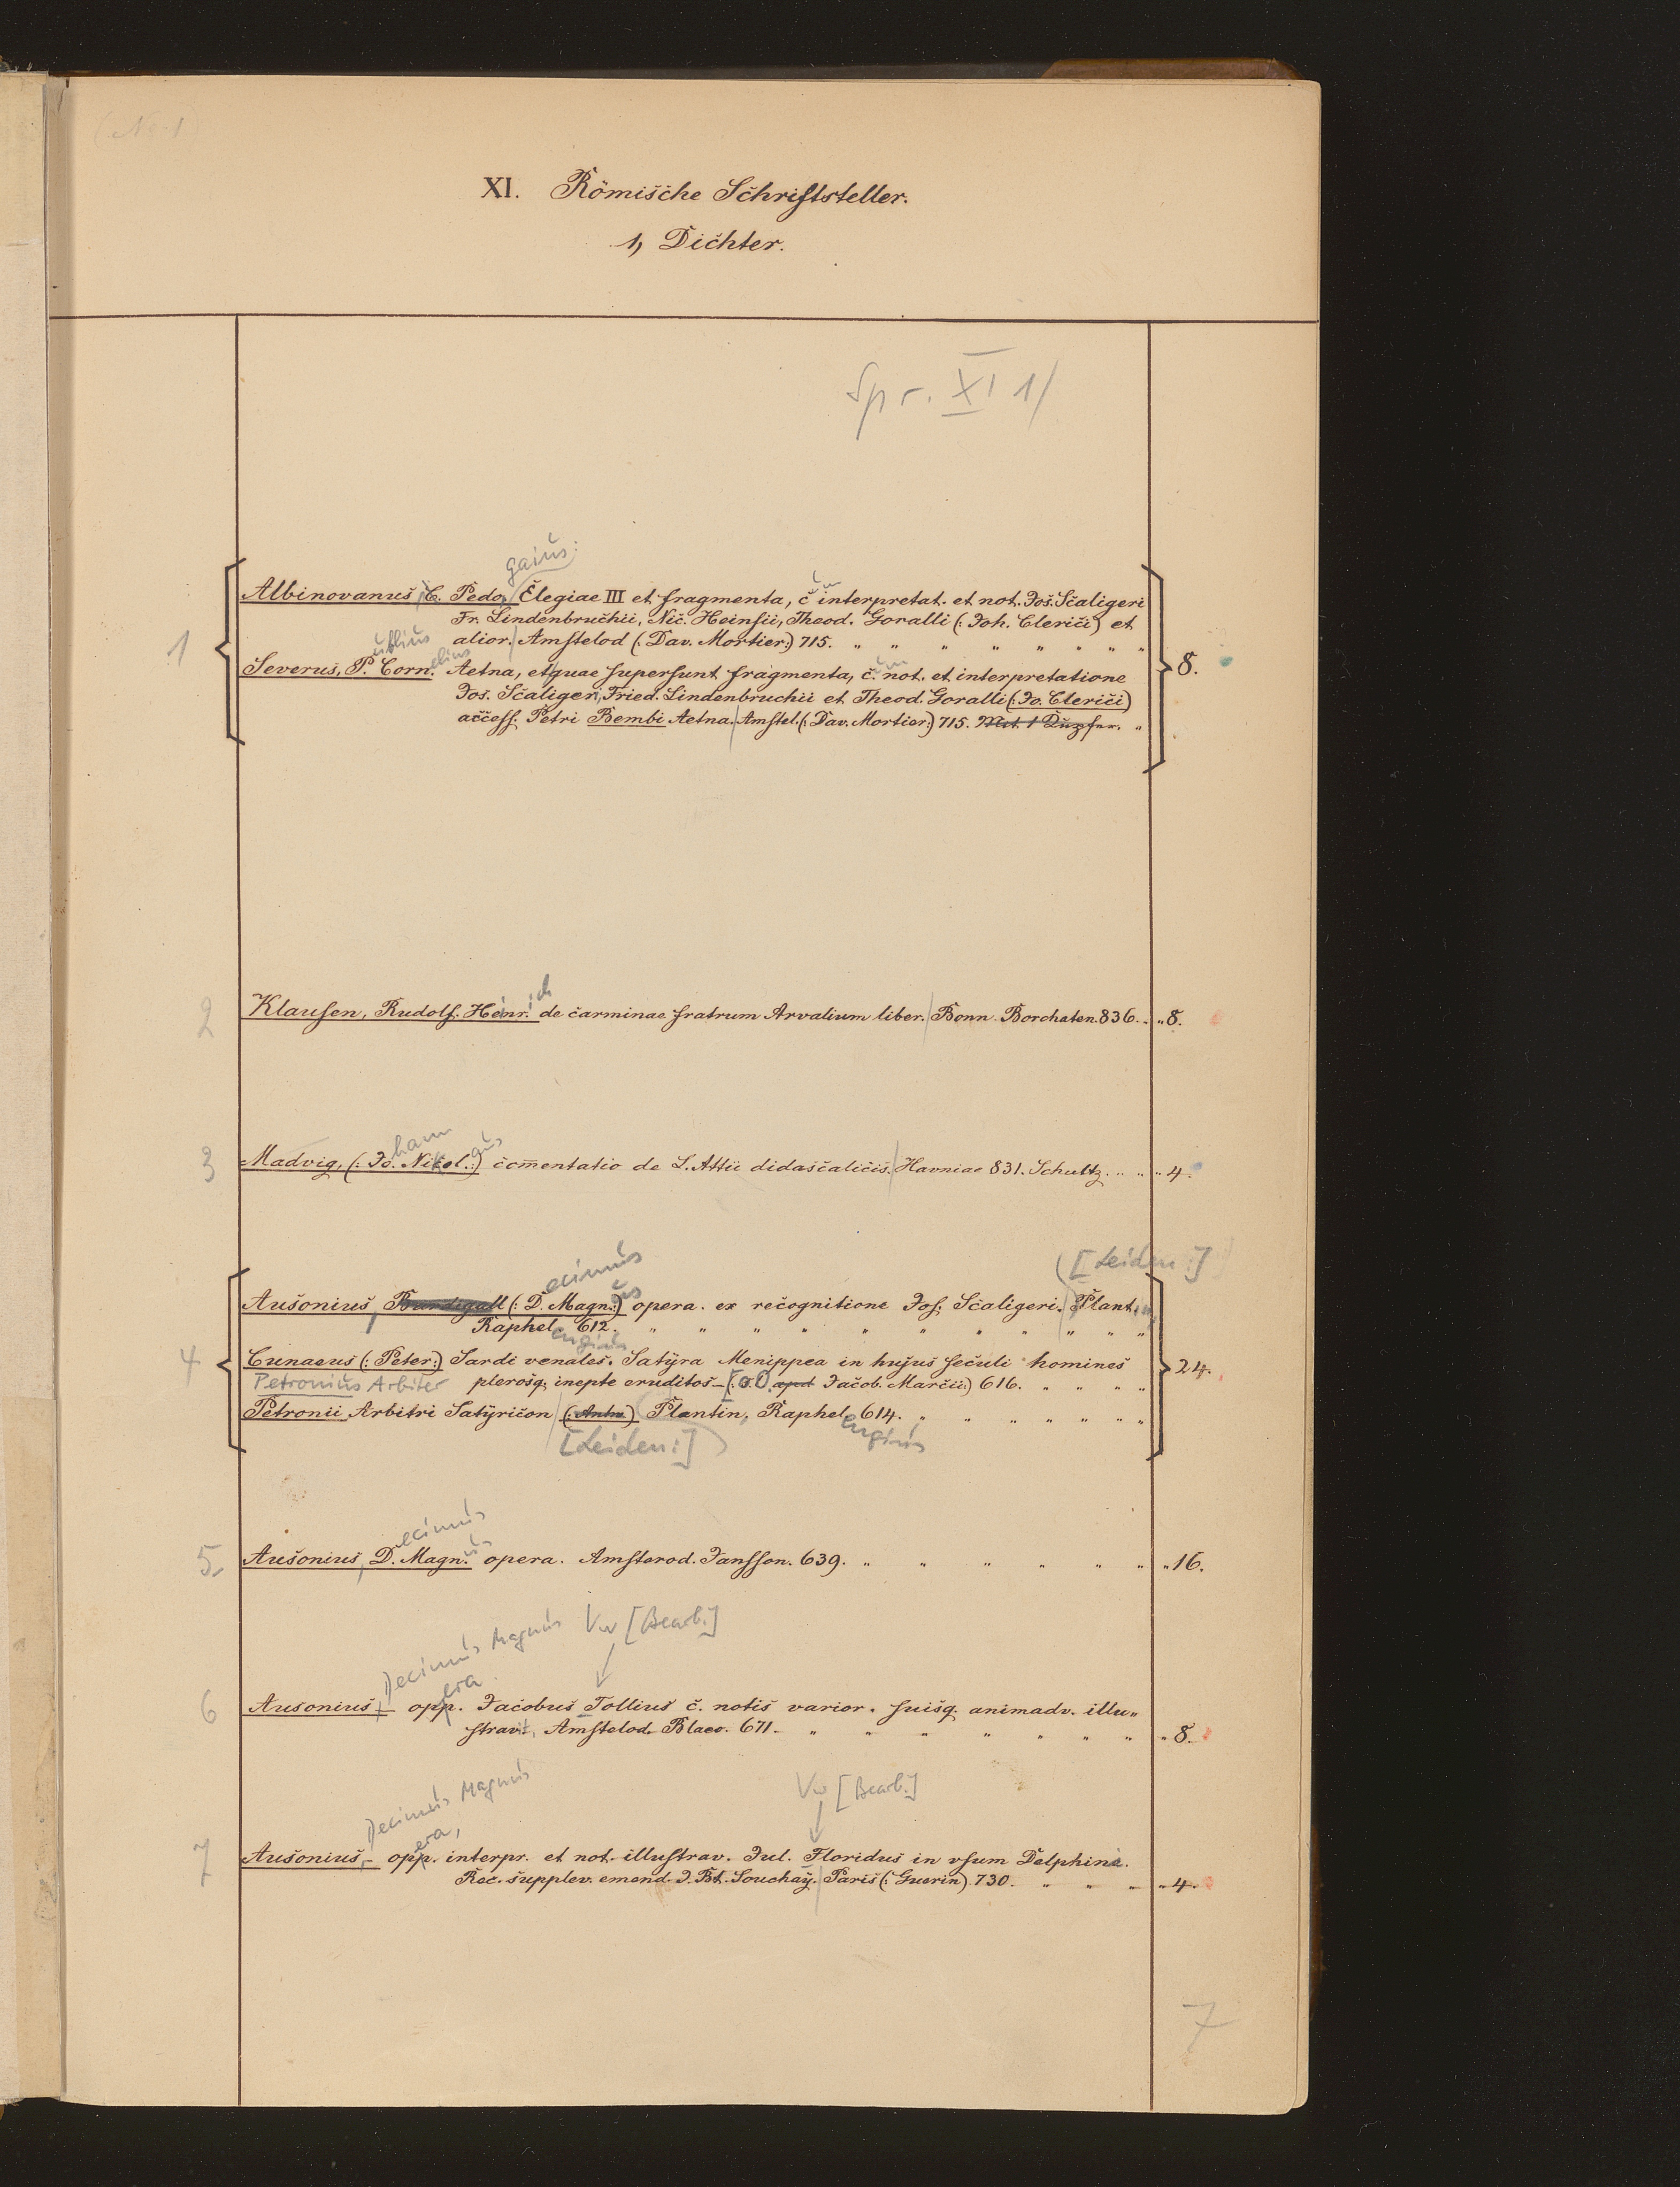 XI. Römische Schriftsteller.
1, Dichter.
Spr. XI 1/
gaius
1 Albinovanus, C. Pedo, Elegiae III et fragmenta, c um interpretat. et not. Jos. Scaligeri
Fr. Lindenbruchii, Nic. Heinsii, Theod. Goralli (: Joh. Clerici) et
alior. Amstelod (: Dav. Mortier:) 715. " " " " " " " "
ublius elius um
Severus, P. Corn. Aetna, et quae supersunt fragmenta, c. not. et interpretatione 8.
Jos. Scaligeri, Fried. Lindenbruchii et Theod. Goralli (: Jo. Clerici)
access. Petri Bembi Aetna. Amstel. (: Dav. Mortier:) 715. "
ich
2 Klausen, Rudolf. Heinr. de carminae fratrum Arvalium liber. Bonn Borchaten. 836. " " 8.
hann aus
3 Madvig, (: Jo. Nikol.:) comentatio de L. Attii didascalicis. Havniae 831. Schultz. " " " 4.
ecimus us ([Leiden:])
4 Ausonius, Burdigall (: D. Magn.:) opera. ex recognitione Jos. Scaligeri. Plant.
Raphel. 612. " " " " " " " " " "
engius
Cunaeus (: Peter:) Sardi venales. Satÿra Menippea in hujus seculi homines 24.
Petronius Arbiter plerosq. inepte eruditos – [: o. O. apud Jacob. Marcii:) 616. " " " "
Petronii Arbitri Satÿricon (: Antw.) Plantin, Raphel. 614. " " " " " " "
[Leiden:]) engius
ecimus us
5 Ausonius, D. Magn. opera. Amsterod. Jansson. 639. " " " " " " " 16.
Decimus Magnus Vw [Bearb.]
era
6 Ausonius, – opp. Jacobus Tollius c. notis varior. suisq. animadv. illu"
stravit, Amstelod. Blaeo. 671. " " " " " " " " 8.
Decimus Magnus Vw [Bearb.]
era,
7 Ausonius, – opp. interpr. et not. illustrav. Jul. Floridus in vsum Delphini.
Rec. supplev. emend. J. Bt. Souchaÿ. Paris (: Guerin) 730. " " " " 4.
7